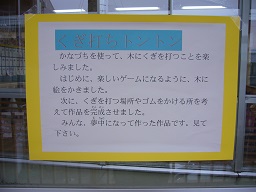 くぎ打ちトントン
かなづちを使って、木にくぎを打つことを楽
しみました。
はじめに、楽しいゲームになるように、木に
絵をかきました。
次に、くぎを打つ場所やゴムをかける所を考
えて作品を完成させました。
みんな、夢中になって作った作品です。見て
下さい。